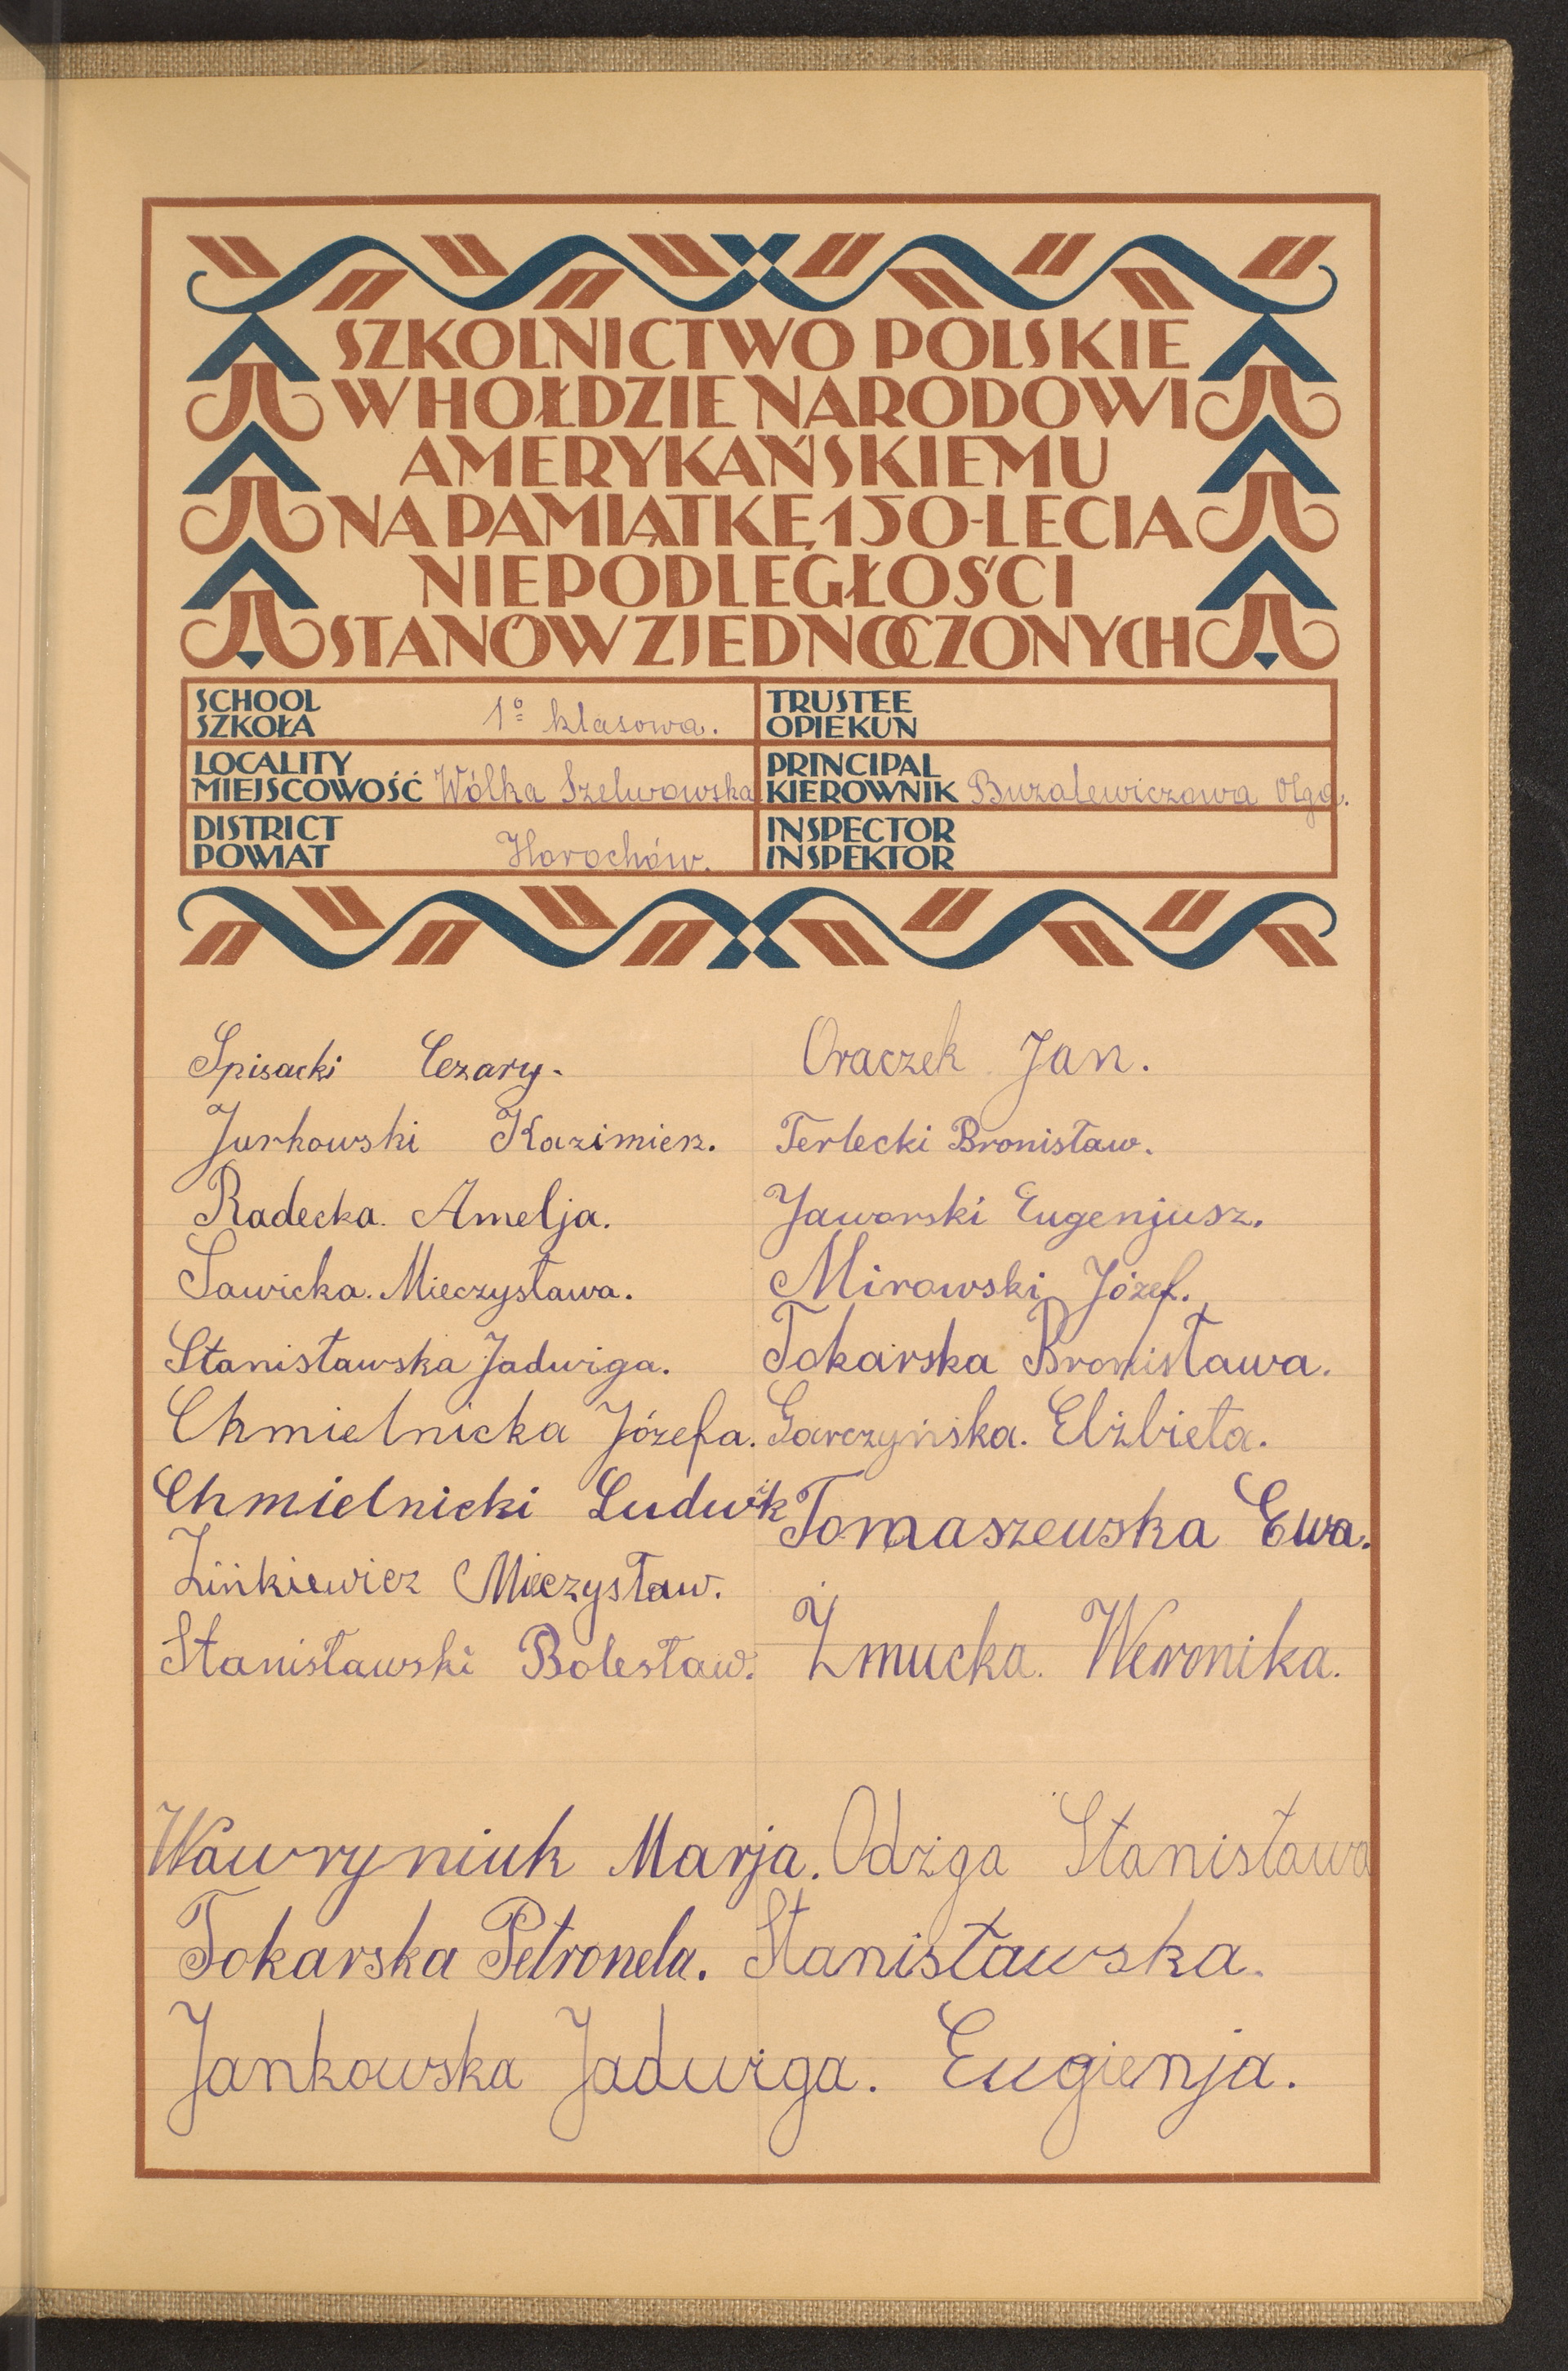 SZKOLNICTWO POLSKIE
W HOŁDZIE NARODOWI
AMERYKAŃSKIEMU
NA PAMIĄTKĘ 150-LECIA
NIEPODLEGŁOŚCI
STANÓW ZJEDNOCZONYCH
SCHOOL
SZKOŁA 1º klasowa.
TRUSTEE
OPIEKUN
LOCALITY
MIEJSCOWOŚĆ Wólka Szelwowska
PRINCIPAL
KIEROWNIK Buzalewiczowa Olga.
DISTRICT
POWIAT Horochów.
INSPECTOR
INSPEKTOR
Spisacki Cezary.
Jurkowski Kazimierz.
Radecka. Amelja.
Sawicka. Mieczysława.
Stanisławska Jadwiga.
Chmielnicka Józefa.
Chmielnicki Ludwik
Zińkiewicz Mieczysław.
Stanisławski Bolesław.
Oraczek Jan.
Terlecki Bronisław.
Jaworski Eugenjusz.
Mirowski Józef.
Tokarska Bronisława.
Garczyńska. Elżbieta.
Tomaszewska Ewa.
Żmucka. Weronika.
Wawryniuk Marja.
Tokarska Petronela.
Jankowska Jadwiga.
Odżga Stanisława
Stanisławska.
Eugienja.